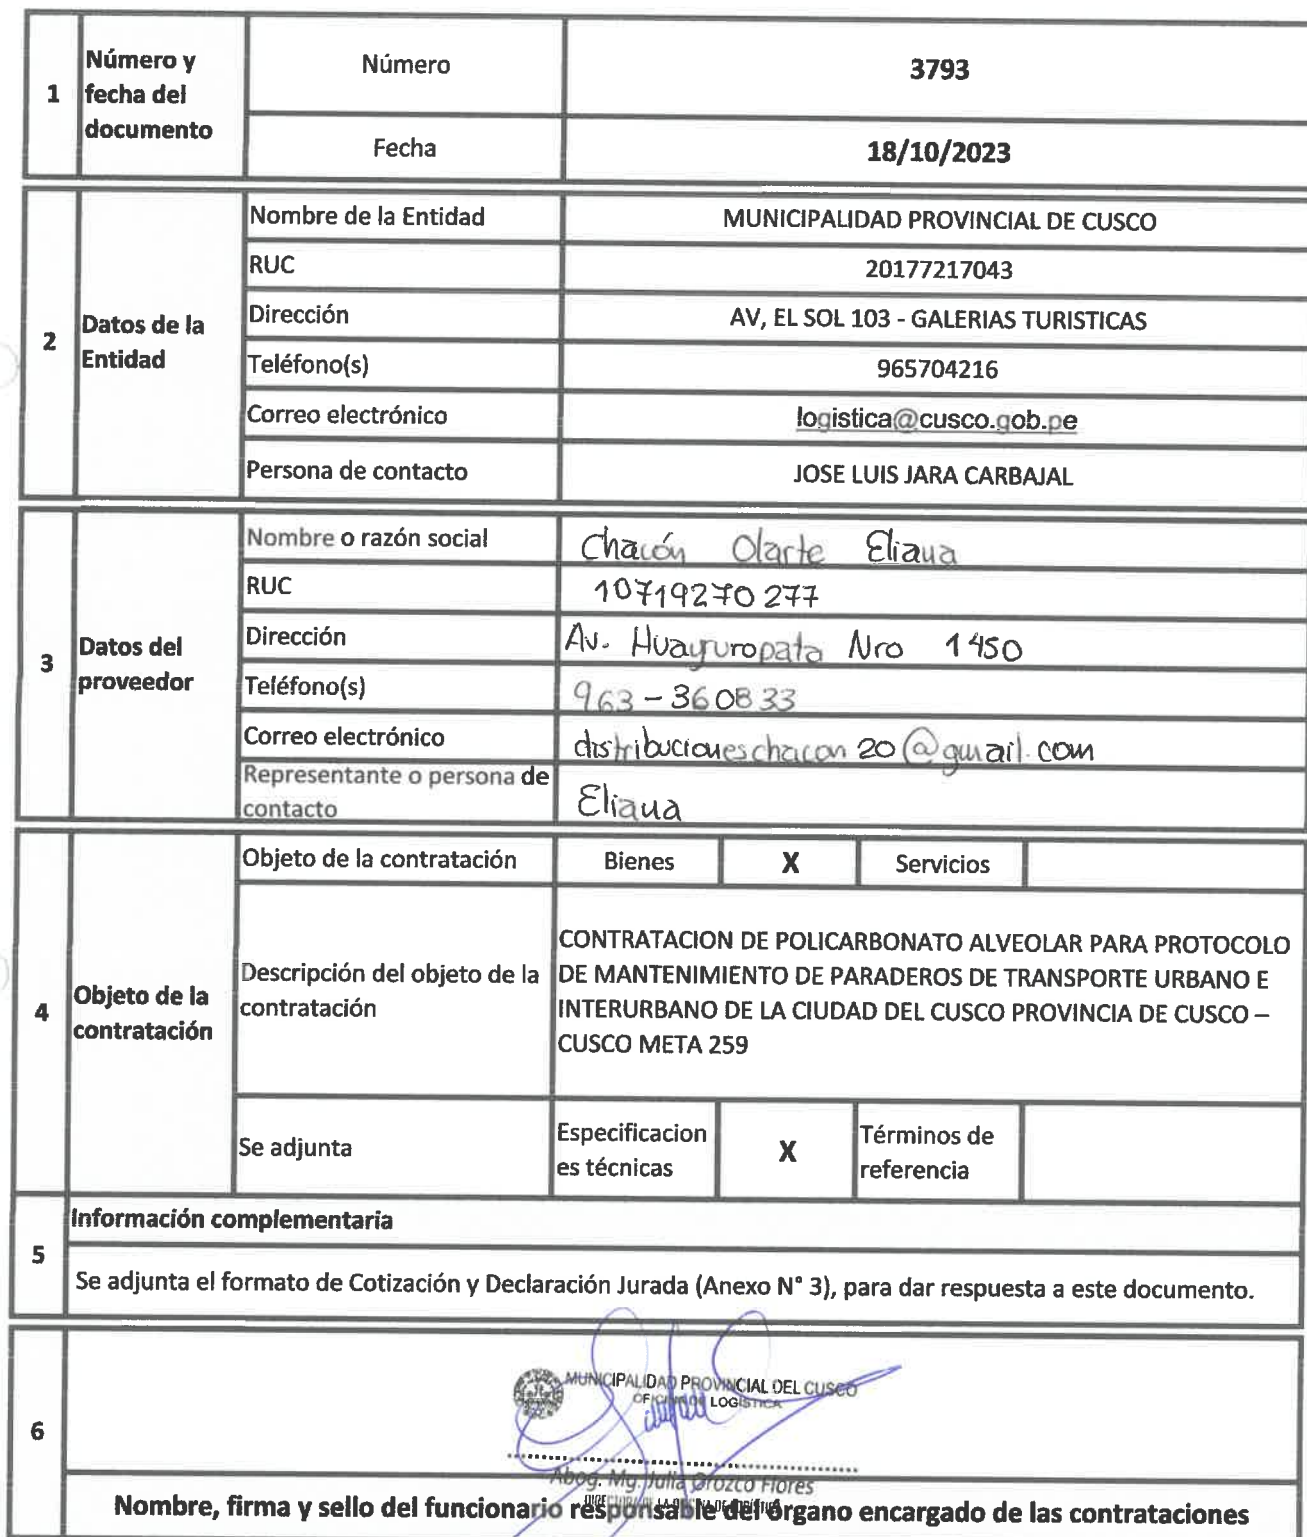 1
Número y
fecha del
documento
Número
3793
Fecha
18/10/2023
2
Datos de la
Entidad
Nombre de la Entidad
MUNICIPALIDAD PROVINCIAL DE CUSCO
RUC
20177217043
Dirección
AV, EL SOL 103 - GALERIAS TURISTICAS
Teléfono(s)
965704216
Correo electrónico
logistica@cusco.gob.pe
Persona de contacto
JOSE LUIS JARA CARBAJAL
3
Datos del
proveedor
Nombre o razón social
Chacón Olarte Eliana
RUC
10719270277
Dirección
Av. Huayruropata Nro 1450
Teléfono(s)
963-360833
Correo electrónico
distribucioneschacon20@gmail.com
Representante o persona de
contacto
Eliana
4
Objeto de la
contratación
Objeto de la contratación
Bienes X Servicios
Descripción del objeto de la
contratación
CONTRATACION DE POLICARBONATO ALVEOLAR PARA PROTOCOLO
DE MANTENIMIENTO DE PARADEROS DE TRANSPORTE URBANO E
INTERURBANO DE LA CIUDAD DEL CUSCO PROVINCIA DE CUSCO –
CUSCO META 259
Se adjunta
Especificacion
es técnicas
X
Términos de
referencia
5
Información complementaria
Se adjunta el formato de Cotización y Declaración Jurada (Anexo N° 3), para dar respuesta a este documento.
6
MUNICIPALIDAD PROVINCIAL DEL CUSCO
OFICINA DE LOGÍSTICA
Abog. Mg. Julia Orozco Flores
Nombre, firma y sello del funcionario responsable del órgano encargado de las contrataciones